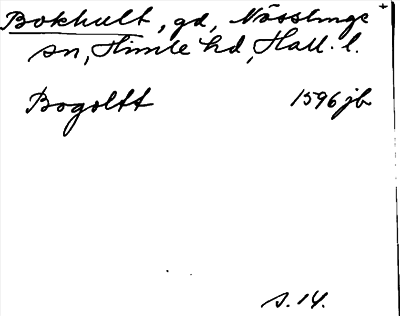 Bokhult, gd, Nösslinge
sn, Himle hd, Hall. l.
Bogoltt 1596 jb
s. 14.